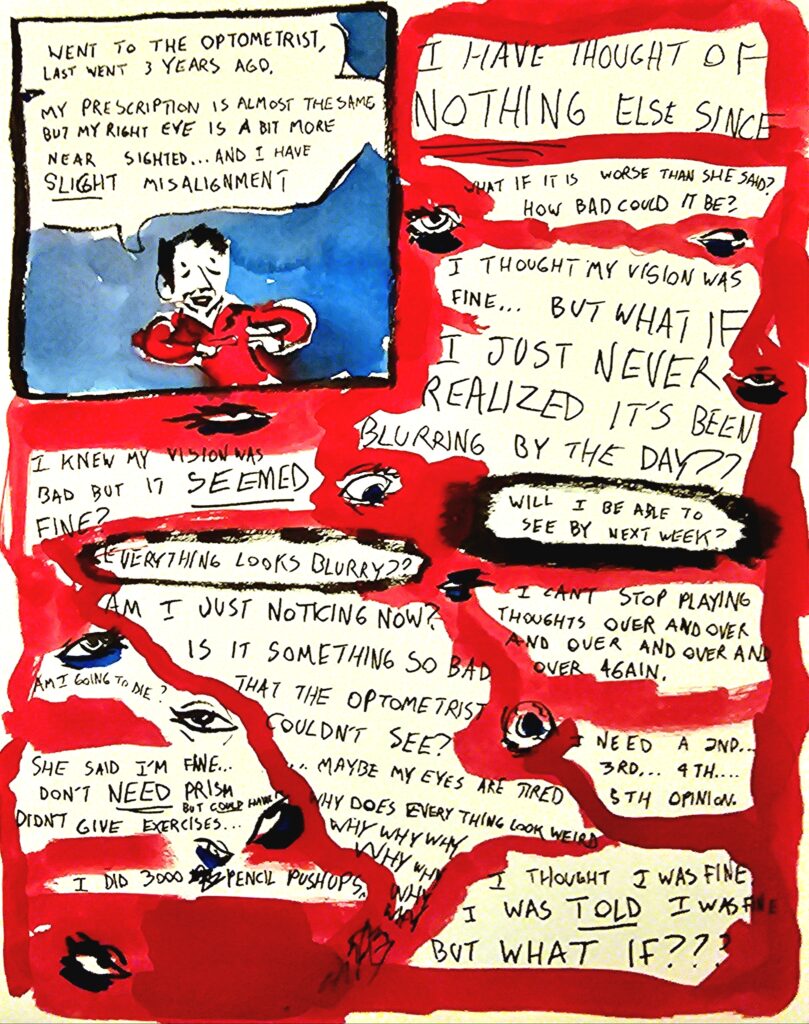 WENT TO THE OPTOMETRIST,
LAST WENT 3 YEARS AGO.
MY PRESCRIPTION IS ALMOST THE SAME
BUT MY RIGHT EYE IS A BIT MORE
NEAR SIGHTED... AND I HAVE
SLIGHT MISALIGNMENT
I HAVE THOUGHT OF
NOTHING ELSE SINCE
WHAT IF IT IS WORSE THAN SHE SAID?
HOW BAD COULD IT BE?
I THOUGHT MY VISION WAS
FINE... BUT WHAT IF
I JUST NEVER
REALIZED IT'S BEEN
BLURRING BY THE DAY??
I KNEW MY VISION WAS
BAD BUT IT SEEMED
FINE?
WILL I BE ABLE TO
SEE BY NEXT WEEK?
EVERYTHING LOOKS BLURRY??
AM I JUST NOTICING NOW?
IS IT SOMETHING SO BAD
THAT THE OPTOMETRIST
COULDN'T SEE?
... MAYBE MY EYES ARE TIRED
WHY DOES EVERY THING LOOK WEIRD
WHY WHY WHY
WHY WHY
WHY
WHY
I CAN'T STOP PLAYING
THOUGHTS OVER AND OVER
AND OVER AND OVER AND
OVER AGAIN.
AM I GOING TO DIE?
I NEED A 2ND...
3RD... 4TH....
5TH OPINION.
SHE SAID I'M FINE...
DON'T NEED PRISM
BUT COULD HAVE
DIDN'T GIVE EXERCISES...
I DID 3000 PENCIL PUSHUPS,
I THOUGHT I WAS FINE
I WAS TOLD I WAS FINE
BUT WHAT IF???